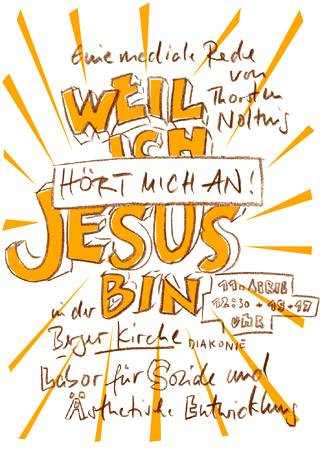 Eine mediale Rede
von
Thorsten
Nolting
WEIL
ICH
HÖRT MICH AN!
JESUS
BIN
11. APRIL
12:30 + 15 + 17
UHR
in der
Berger Kirche
DIAKONIE
Labor für Soziale und
Ästhetische Entwicklung